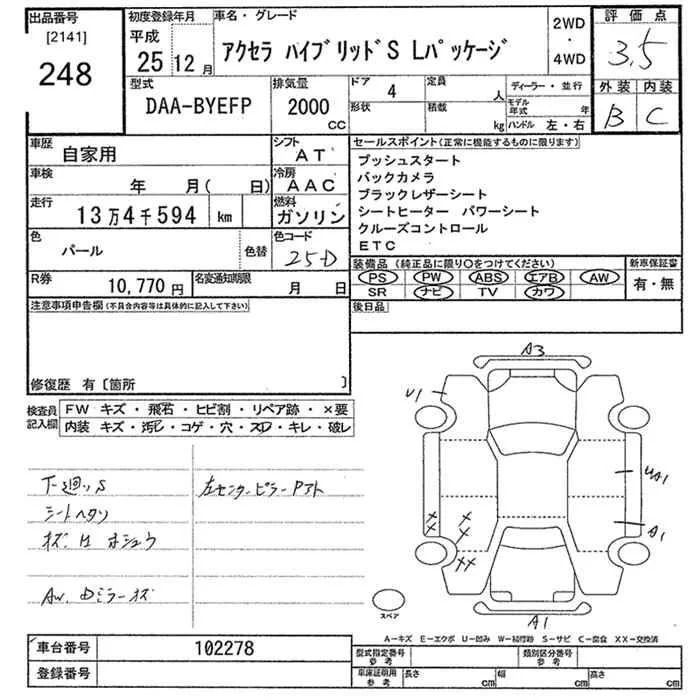 出品番号
[2141]
248
初度登録年月
平成
25 12月
車名・グレード
アクセラ ハイブリッドS Lパッケージ
2WD
・
4WD
評価点
3.5
外装 内装
B C
型式
DAA-BYEFP
排気量
2000
CC
ドア 4
形状
定員 人
積載 kg
ディーラー・並行
モデル年式 年
ハンドル 左・右
車歴
自家用
シフト
AT
車検
年 月( 日)
冷房
AAC
走行
13万4千594 km
燃料
ガソリン
色
パール
色替
色コード
25-D
R券
10,770円
名変通知期限
月 日
セールスポイント(正常に機能するものに限ります)
プッシュスタート
バックカメラ
ブラックレザーシート
シートヒーター パワーシート
クルーズコントロール
ETC
装備品(純正品に限り○をつけてください)
PS PW ABS エアB AW
SR ナビ TV カワ
新車保証書
有・無
後日品
注意事項申告欄(不具合内容等は具体的に記入して下さい)
修復歴 有〔箇所 〕
検査員記入欄
FW キズ・飛石・ヒビ割・リペア跡・×要
内装 キズ・汚レ・コゲ・穴・スレ・キレ・破レ
下廻りS
シートヘタリ
キズ、H ホシュウ
AW、Dミラーキズ
左センターピラーPアト
A3
U1
UA1
A1
××
××
××
A1
スペア
A−キズ E−エクボ U−凹み W−補修跡 S−サビ C−腐食 XX−交換済
車台番号 102278
登録番号
型式指定番号
参考
類別区分番号
参考
車庫証明用
参考
長さ cm 幅 cm 高さ cm